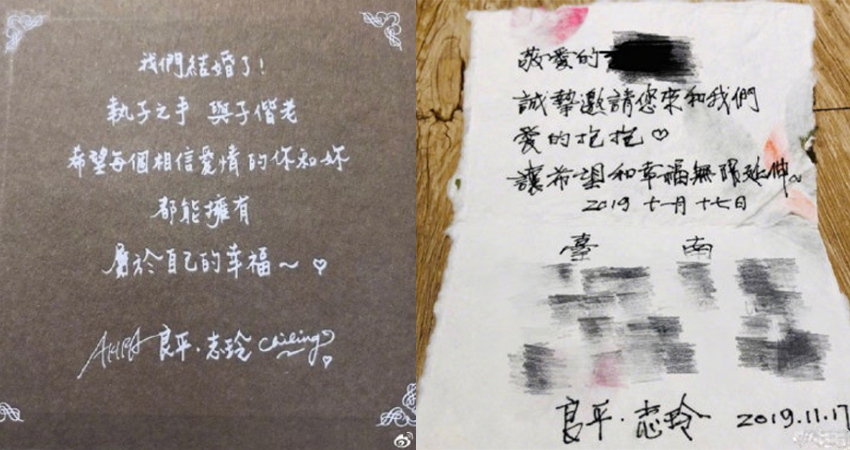 我們結婚了!
執子之手 與子偕老
希望每個相信愛情的你和妳
都能擁有
屬於自己的幸福~ ♡
AKIRA 良平·志玲 Chiling ♡
敬愛的
誠摯邀請您來和我們
愛的抱抱♡
讓希望和幸福無限延伸~
2019 十一月 十七日
臺 南
良平·志玲 2019.11.17